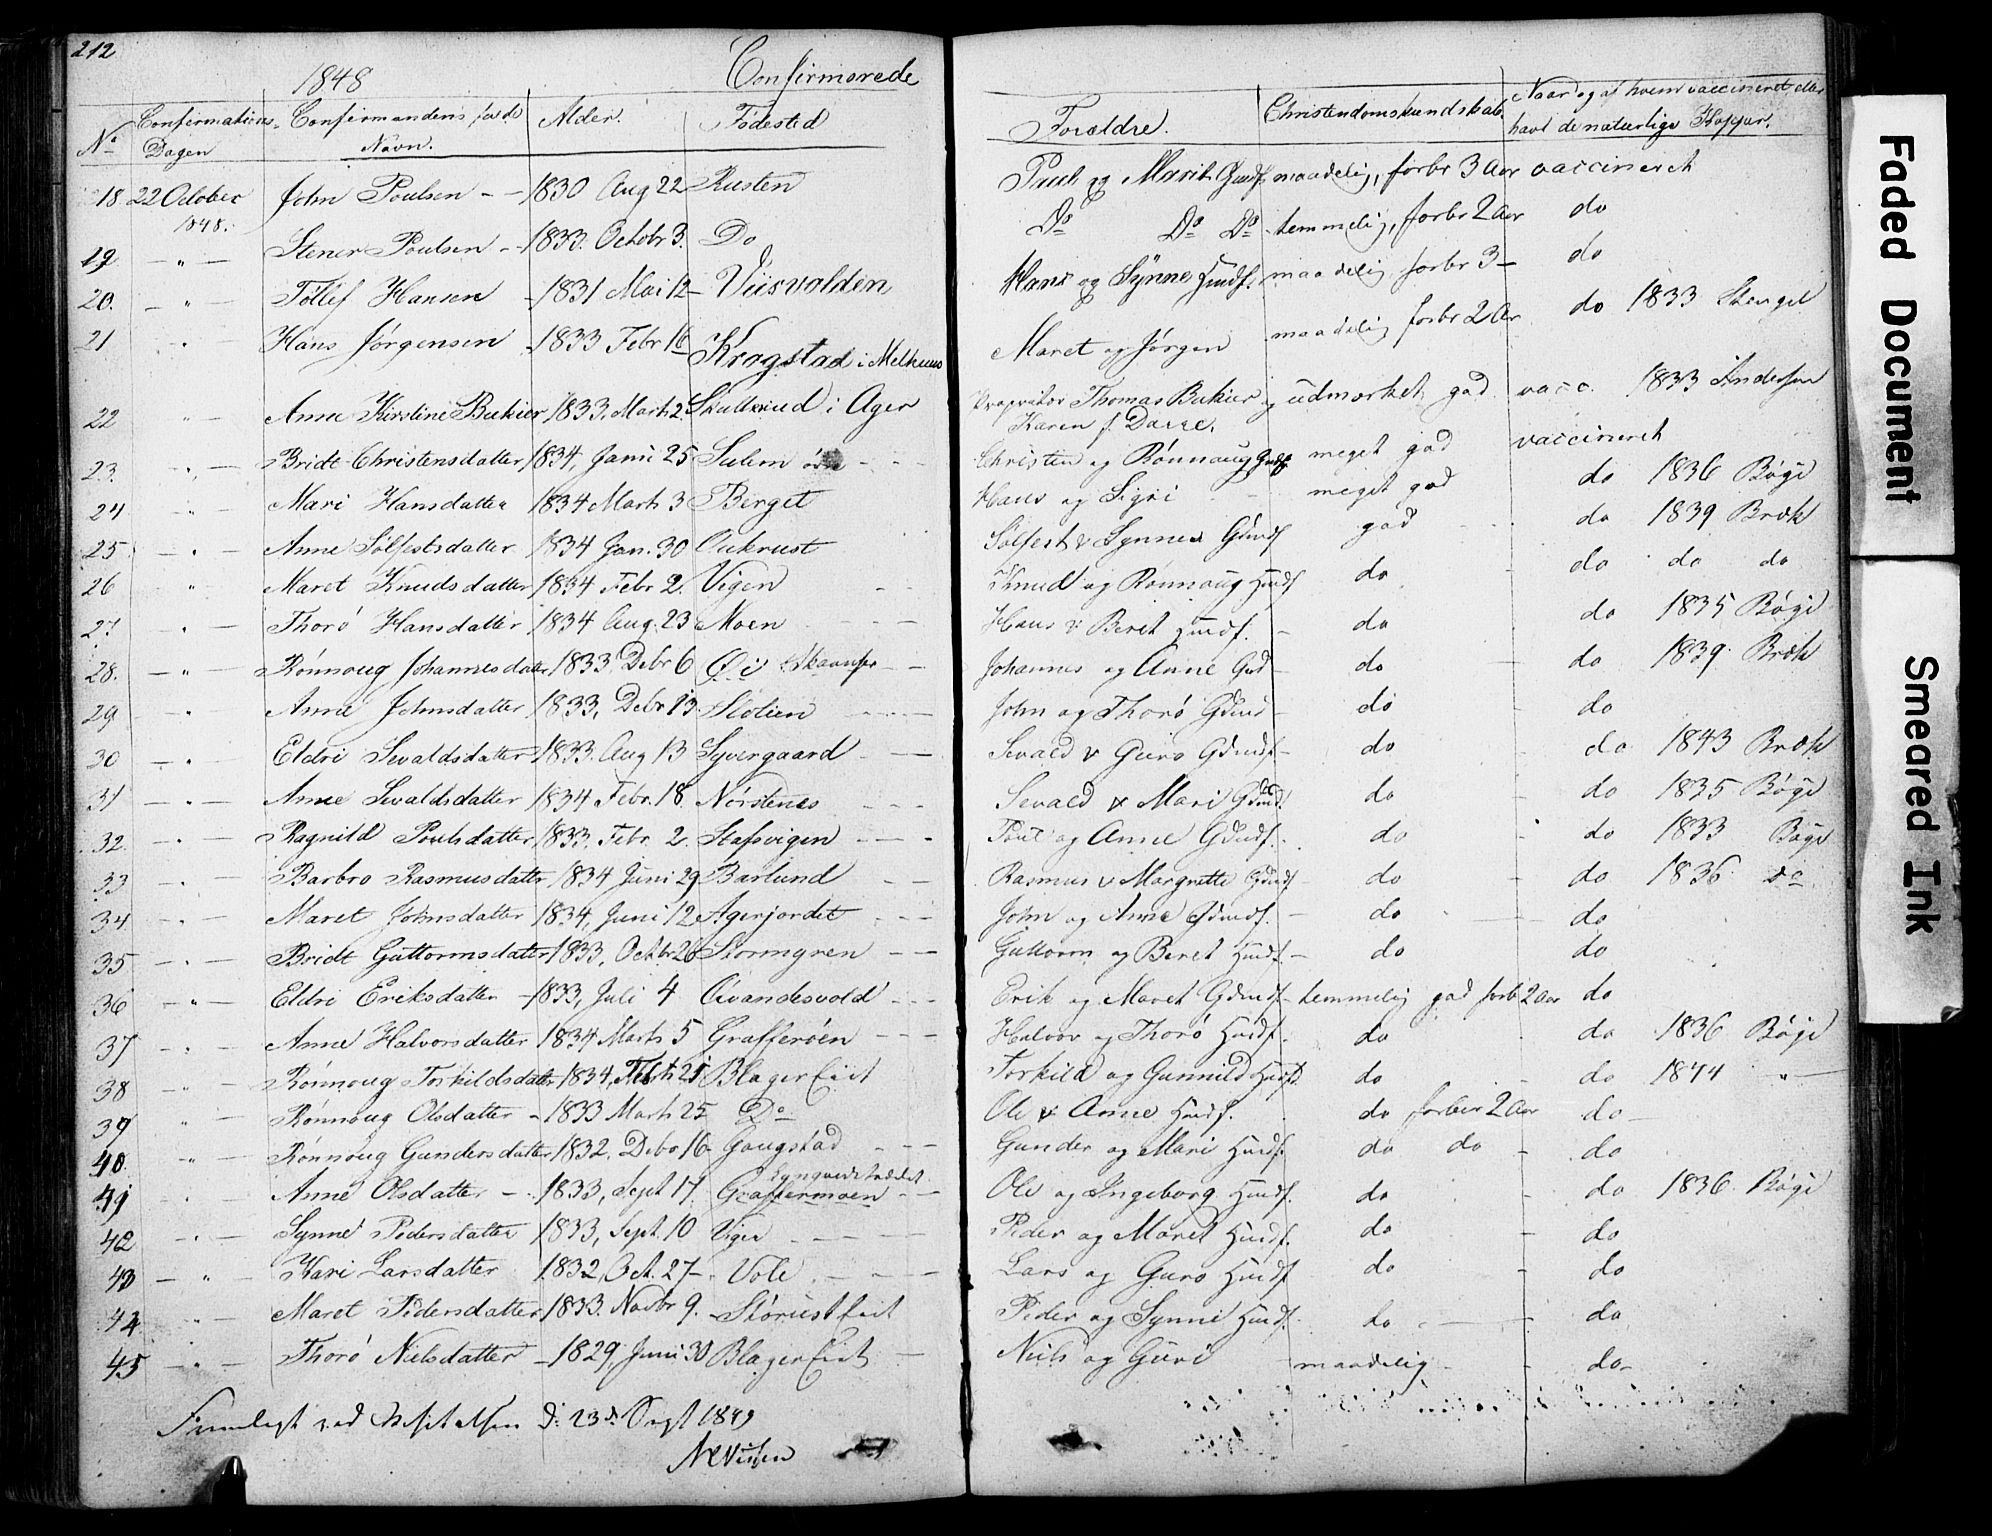 212
1848 Confirmerede
No Confirmations-Dagen Confirmandens fulde Navn. Alder. Fødested Forældre. Christendomskundskab. Naar og af hvem vaccineret eller havt de naturlige Kopper.
18 22 October 1848. John Poulsen - - 1830 Aug 22 Rusten Poul og Marit Gmdf. maadelig, forbr 3 Aar vaccineret
19 - " - Stener Poulsen - - 1833. Octobr 3. Do Do Do Do temmelig, forbr 2 Aar do
20. - " Tollef Hansen - 1831 Mai 12 - Viisvolden Hans og Synne Hmdf. maadelig forbr 3 - do
21 " Hans Jørgensen - 1833 Febr 16 Krogstad i Melhuus Maret og Jørgen maadelig forbr 2 Ar do 1833 Stengel
22 - " - Anne Kirstine Bukier 1833. Marts 2. Skullerud i Ager Proprietær Thomas Bukier og Karen f. Darre. udmærket god vacc. 1833 Andersen
23. - " - Bridt Christensdatter 1834, Janu 25 Sulem - - - Christen og Rønnaug Gmdf meget god vaccineret
24 " Mari Hansdatter 1834 Marts 3 Berget Hans og Sigri - - meget god do 1836 Bøge
25 - " - Anne Solfestsdatter 1834 Jan. 30 Aukrust Solfest & Synne Gdmdf god do 1839 Bræk
26 " Maret Knudsdatter 1834 Febr 2. Vigen - - Knud og Rønnaug Hmdf do do do do
27 - " - Thorø Hansdatter 1834 Aug. 23 Moen - - Hans & Berit Hmdf. - do do 1835 Bøge
28. - " - Rønnoug Johannesdatter 1833 Debr 6 Øi i Skaarfor - - Johannes og Anne Gmd - do - do 1839. Bræk
29 - " - Anne Johnsdatter 1833, Debr 13 Slotien - - - John og Thorø Gdmd - do - do
30 - " - Eldri Sevaldsdatter 1833. Aug 13 Syvergaard - - Sevald & Guro Gdmdf - do - do 1843 Bræk
31 - " - Anne Sevaldsdatter 1834 Febr. 18. Nørstenes - - - Sevald & Mari Gdmd. do - do 1835 Bøge
32. - " - Ragnild Poulsdatter 1833, Febr. 2 Stafsvigen - - - Poul og Anne Gdmdf. do - do 1833 Bøge
33 - " - Barbro Rasmusdatter 1834 Juni 29 Barlund - - Rasmus & Margrette Gdmdf - do - do 1836. do
34. - " - Maret Johnsdatter 1834, Juni 12 Agerjordet - - - John og Anne Gdmdf. - do - do
35 - " - Bridt Guttormsdatter 1833, Octbr 26 Stormgren - - Guttorm og Beret Hmdf. - do do
36 - " - Eldri Eriksdatter - 1833, Juli 4 Qvandesvold - - - Erik og Maret Gdmdf - temmelig god forb 2 Aar do
37 - " - Anne Halvorsdatter 1834 Marts 5 Grafferøen - - - Halvor og Thorø Hmdf. do do 1836 Bøge
38 " Rønnoug Torkildsdatter 1834, 25 Blager Eiet Torkild og Gunnild Hmdf. do - do 1844 " -
39 " Rønnoug Olsdatter - 1833 Marts 25 Do Ole & Anne Hmdf. do forber 2 Aar do -
40. - " - Rønnoug Gundersdatter 1832, Debr 16 - Gaugstad - - - Gunder og Mari Hmdf. do do - do
41 - " - Anne Olsdatter - - 1833, Sept 17. Graffermoen - - Ole og Ingeborg Hmdf. do do 1836. Bøge
42 - " - Synne Pedersdatter 1833, Sept. 10 Vigen - - - - Peder og Maret Hmdf. do - do
43 - " - Kari Larsdatter 1832, Oct. 27 - Vole - - - Lars og Guro Hmdf do - do
44 - " - Maret Pedersdatter 1833. Novbr 9. Størusteiet Peder og Synne Hmdf. do - do
45 - " - Thorø Nielsdatter - 1829, Juni 30 Blager Eiet - Niels og Guri - maadelig - - do -
Fremlagt ved Visitatsen D: 23de Sept 1849
Faded Document
Smeared Ink